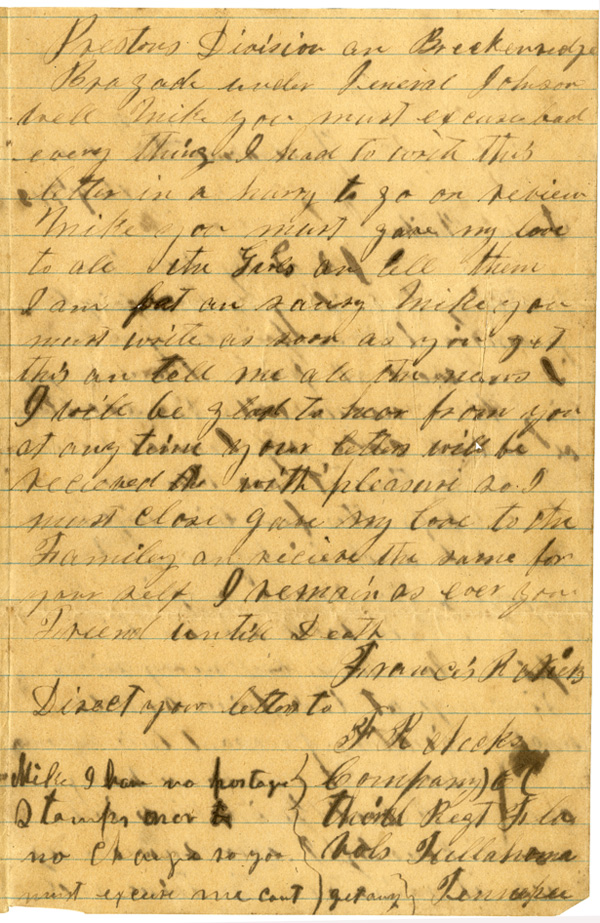 Prestons Division an Breckenridge
Bragade under General Johnson
well Mike you must excuse bad
every thing I had to wrih this
letter in a hurry to go on review
Mike you must gave my love
to all the Girls an tell them
I am fat an saucy Mike you
must write as soon as you get
this an tell me all the news
I will be glad to hear from you
at any time your letters will be
recieved with pleasure so I
must close gave my love to the
Familey an recieve the same for
your self I remain as ever you
Friend untill Death
Francis
Direct your letters to
F R
Company C
Mike I have no postage
Third Regt Fla
Stamps nor
Vols Tullahoma
no Change so you
Tennessee
must excuse me cant get any